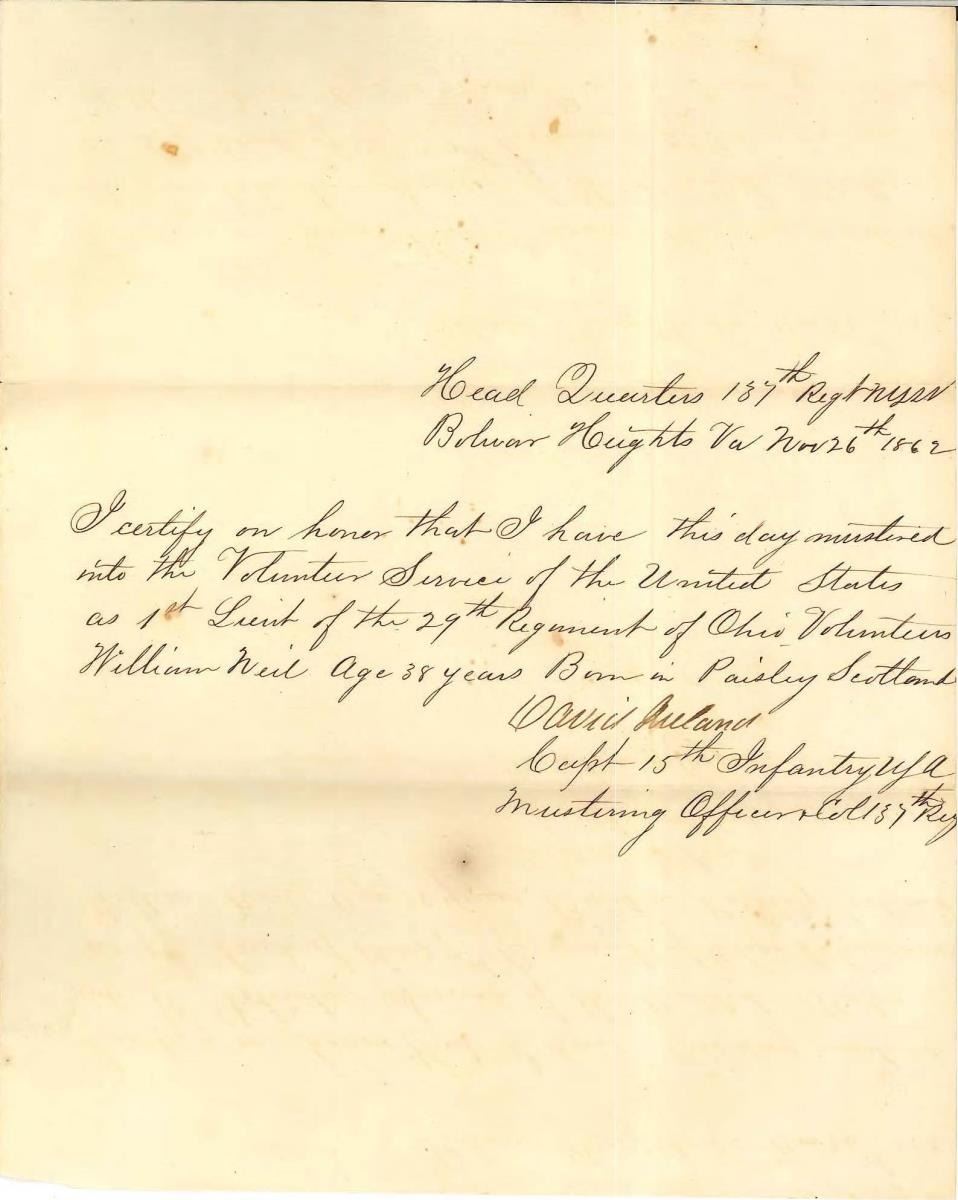 Head Quarters 137th Regt NYSV
Bolivar Heights Va Nov 26th 1862
I certify on honor that I have this day mustered
into the Volunteer Service of the United States
as 1st Lieut of the 29th Regiment of Ohio Volunteers
William Neil Age 38 years Born in Paisley Scotland
David Ireland
Capt 15th Infantry USA
Mustering Officer & Col 137th Reg